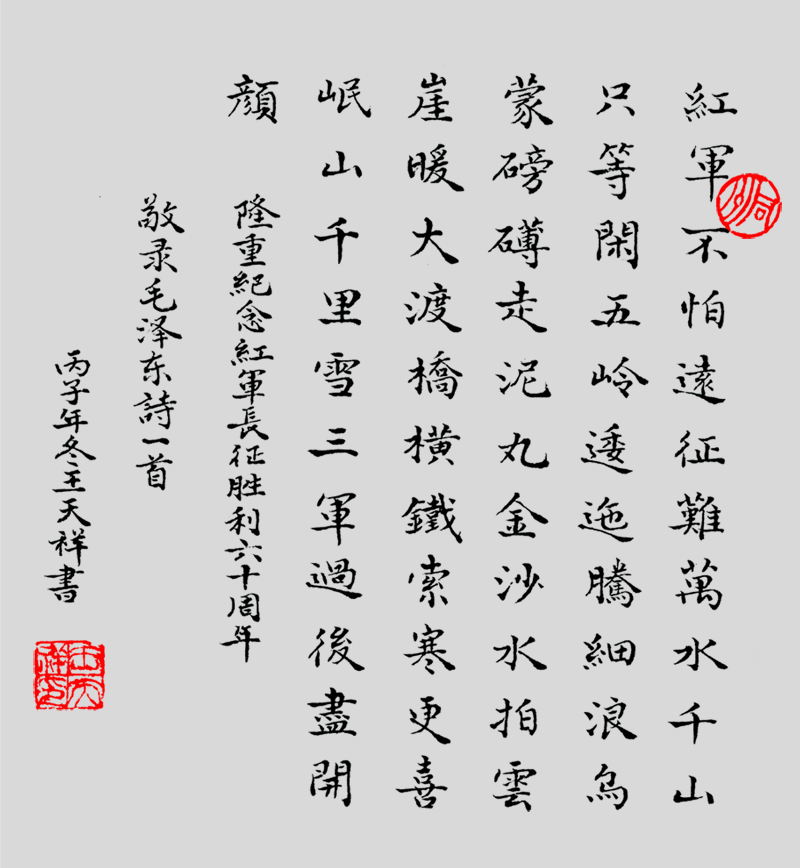 紅軍不怕遠征難萬水千山
只等閑五岭逶迤騰細浪烏
蒙磅礴走泥丸金沙水拍雲
崖暖大渡橋橫鐵索寒更喜
岷山千里雪三軍過後盡開
顔
隆重紀念紅軍長征胜利六十周年
敬录毛泽东詩一首
丙子年冬王天祥書